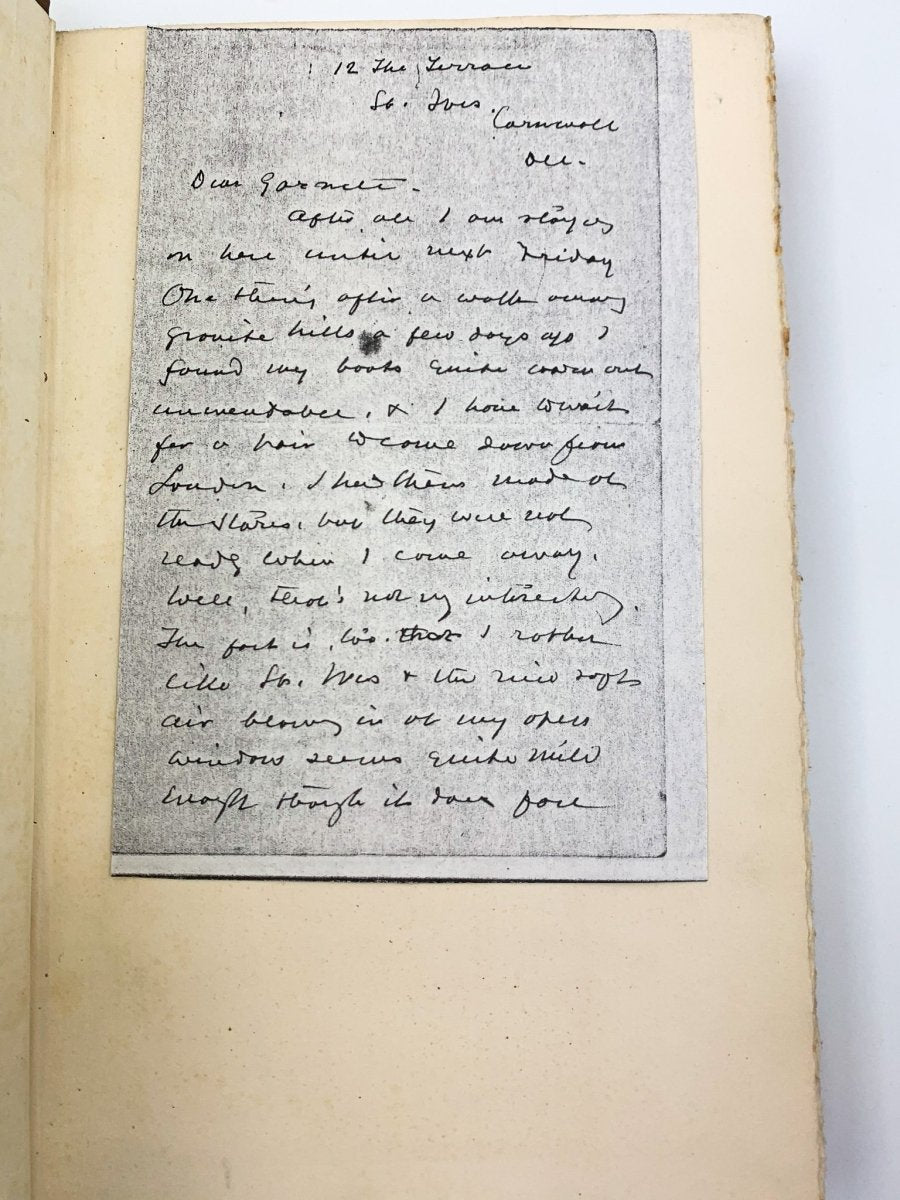 12 The Terrace
St. Ives.
Cornwall
Dear Garnett -
After all I am staying
on here until next Friday
One thing after a walk among
granite hills a few days ago I
found my boots quite worn out
unmendable, & I have to wait
for a pair to come down from
London. I had them made at
the Stores, but they were not
ready when I came away.
Well, that's not very interesting.
The fact is, too, that I rather
like St. Ives & the nice soft
air blowing in at my open
window seems quite mild
enough though it does